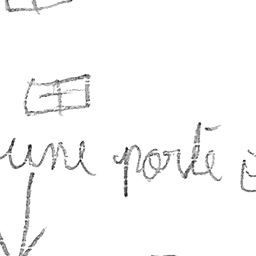 une porte